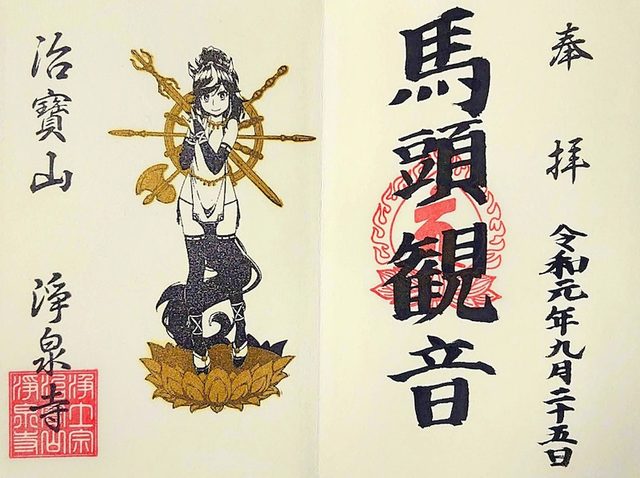 奉拝
令和元年九月二十五日
馬頭観音
治寶山
浄泉寺
浄土宗
治宝山
浄泉寺